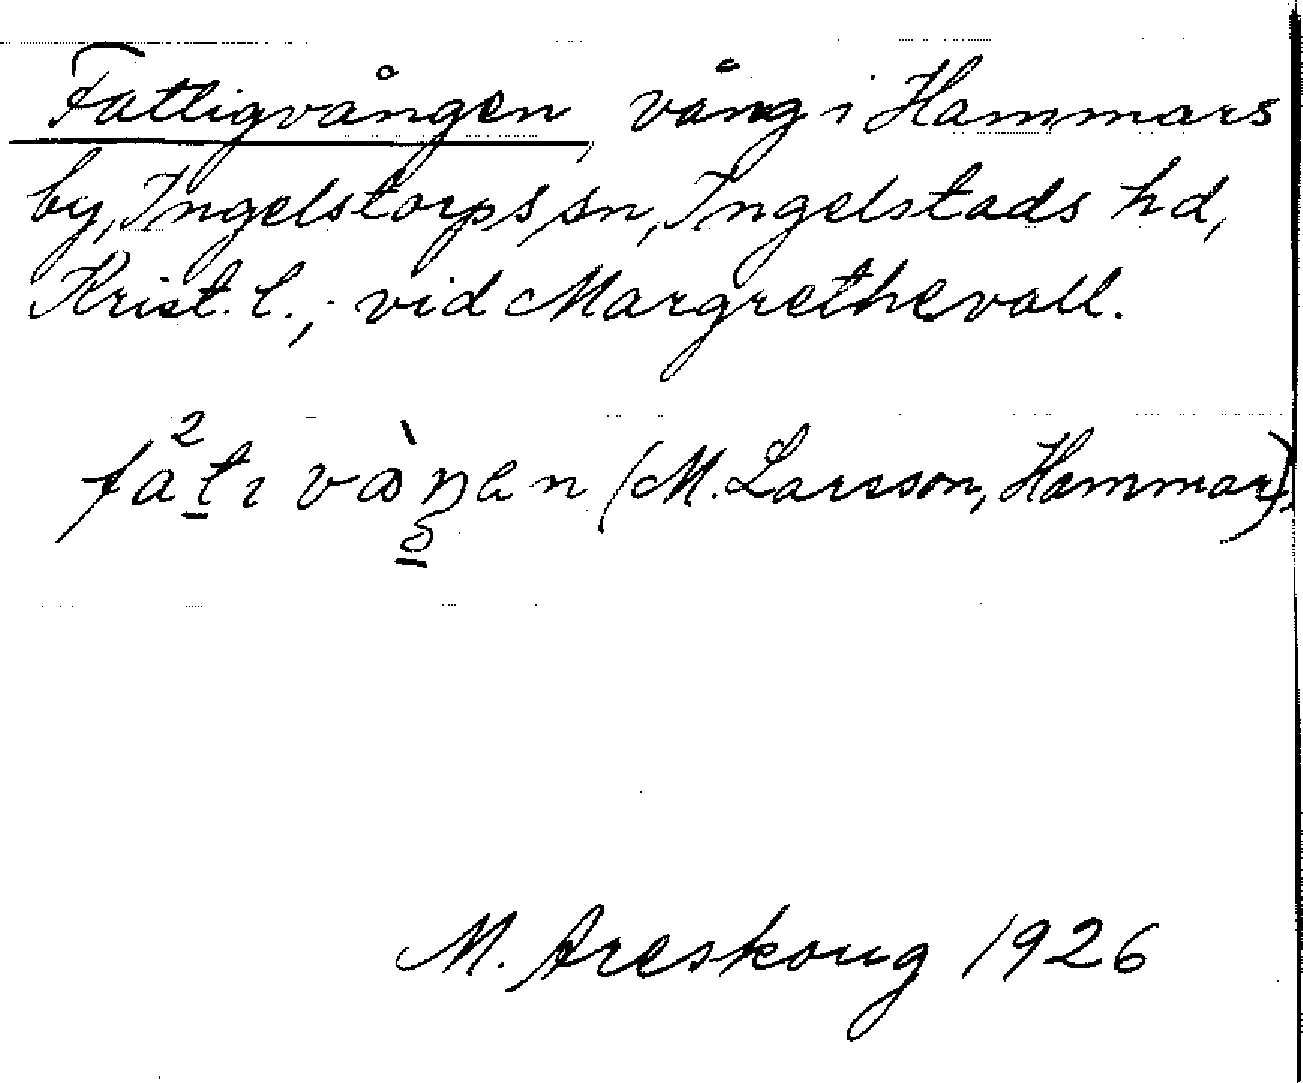 Fattigvången, vång i Hammars
by, Ingelstorps sn, Ingelstads hd,
Krist. l.; vid Margrethevall.
(M. Larsson, Hammar).
M. Areskoug 1926